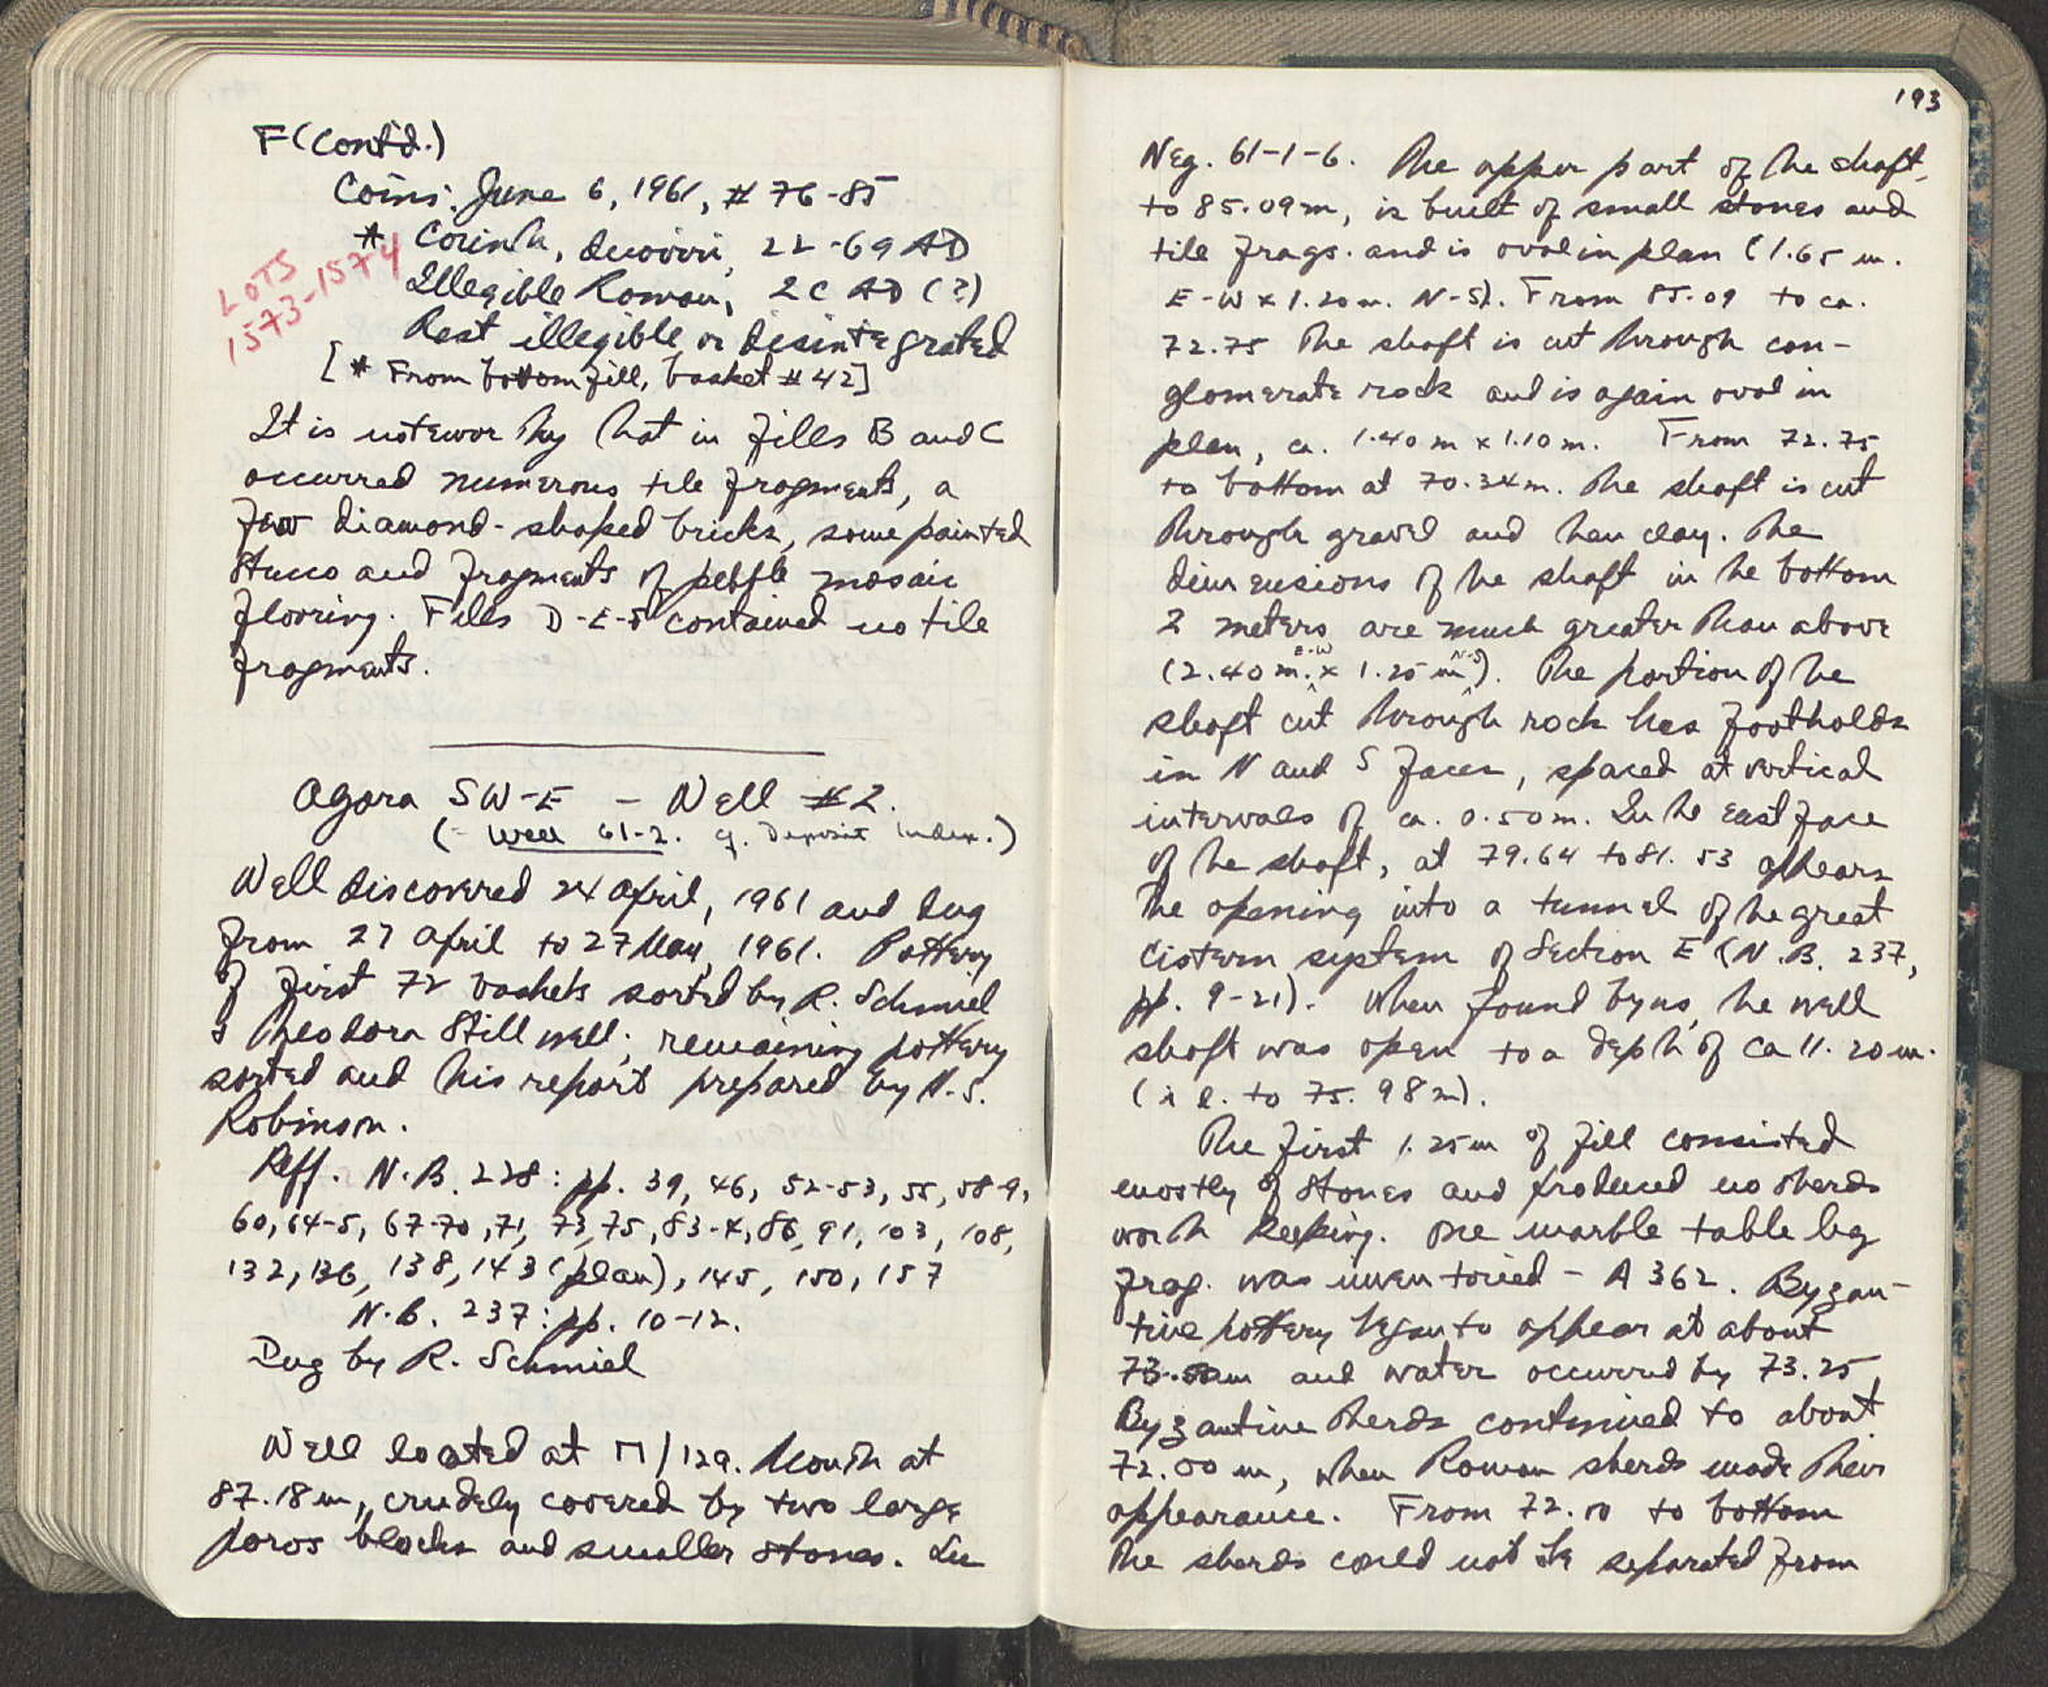 F (Cont'd.)
Coins: June 6, 1961, # 76-85
* Corinth, duoviri, 22-69 AD
LOTS
1573-1574
Illegible Roman, 2C AD (?)
Rest illegible or disintegrated
[* From bottom fill, basket # 42]
It is noteworthy that in fills B and C
occurred numerous tile fragments, a
few diamond-shaped bricks, some painted
stucco and fragments of pebble mosaic
flooring. Fills D-E-F contained no tile
fragments.
Agora SW-E - Well #2.
(= Well 61-2. cf. Deposit Index.)
Well discovered 24 April, 1961 and dug
from 27 April to 27 May, 1961. Pottery
of first 72 baskets sorted by R. Schmiel
& Theodora Stillwell; remaining pottery
sorted and this report prepared by H.S.
Robinson.
Reff. N.B. 228: pp. 39, 46, 52-53, 55, 58-9,
60, 64-5, 67-70, 71, 73, 75, 83-4, 86, 91, 103, 108,
132, 136, 138, 143 (plan), 145, 150, 157
N.B. 237: pp. 10-12.
Dug by R. Schmiel
Well located at Π/129. Mouth at
87.18 m, crudely covered by two large
poros blocks and smaller stones. See
193
Neg. 61-1-6. The upper part of the shaft,
to 85.09 m, is built of small stones and
tile frags. and is oval in plan (1.65 m.
E-W x 1.20 m. N-S). From 85.09 to ca.
72.75 the shaft is cut through con-
glomerate rock and is again oval in
plan, ca. 1.40 m x 1.10 m. From 72.75
to bottom at 70.34 m. the shaft is cut
through gravel and then clay. The
dimensions of the shaft in the bottom
2 meters are much greater than above
(2.40 m. E-W x 1.25 m N-S). The portion of the
shaft cut through rock has footholds
in N and S faces, spaced at vertical
intervals of ca. 0.50 m. In the east face
of the shaft, at 79.64 to 81.53 appears
the opening into a tunnel of the great
cistern system of Section E (N.B. 237,
pp. 9-21). When found by us, the well
shaft was open to a depth of ca 11.20 m.
(i.e. to 75.98 m).
The first 1.25 m of fill consisted
mostly of stones and produced no sherds
worth keeping. One marble table leg
frag. was inventoried - A 362. Byzan-
tine pottery began to appear at about
and water occurred by 73.25
Byzantine sherds continued to about
72.00 m, when Roman sherds made their
appearance. From 72.10 to bottom
the sherds could not be separated from